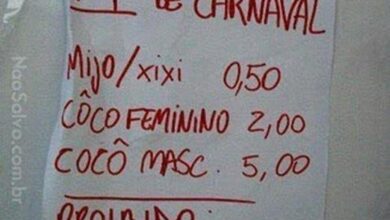 DE CARNAVAL
MIJO/XIXI 0,50
CÔCO FEMININO 2,00
COCÔ MASC. 5,00
NãoSalvo.com.br